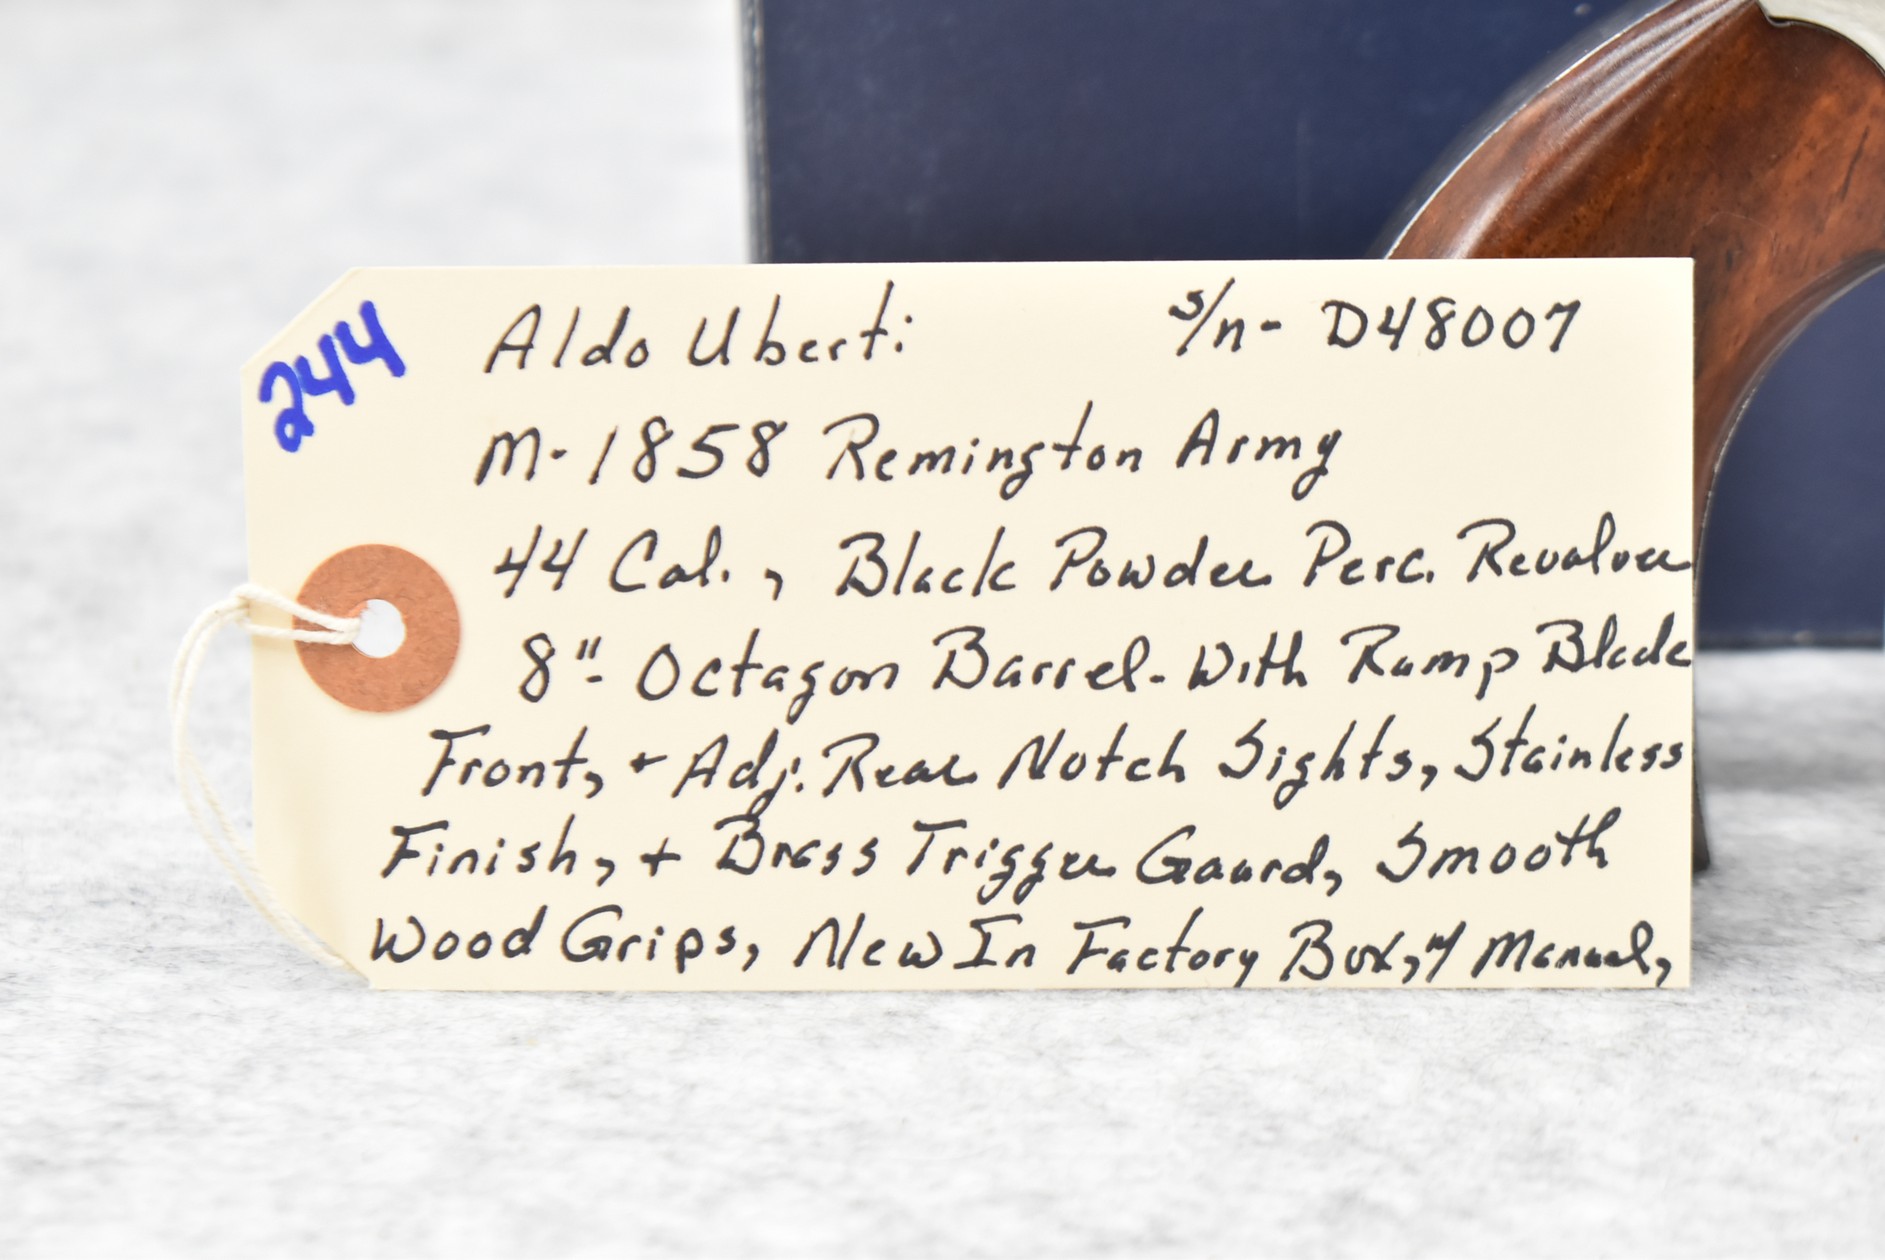 244
Aldo Uberti s/n- D48007
M-1858 Remington Army
44 Cal., Black Powder Perc. Revolver
8"- Octagon Barrel- With Ramp Blade
Front, + Adj. Rear Notch Sights, Stainless
Finish, + Brass Trigger Gaurd, Smooth
Wood Grips, New In Factory Box, w/ Manual,